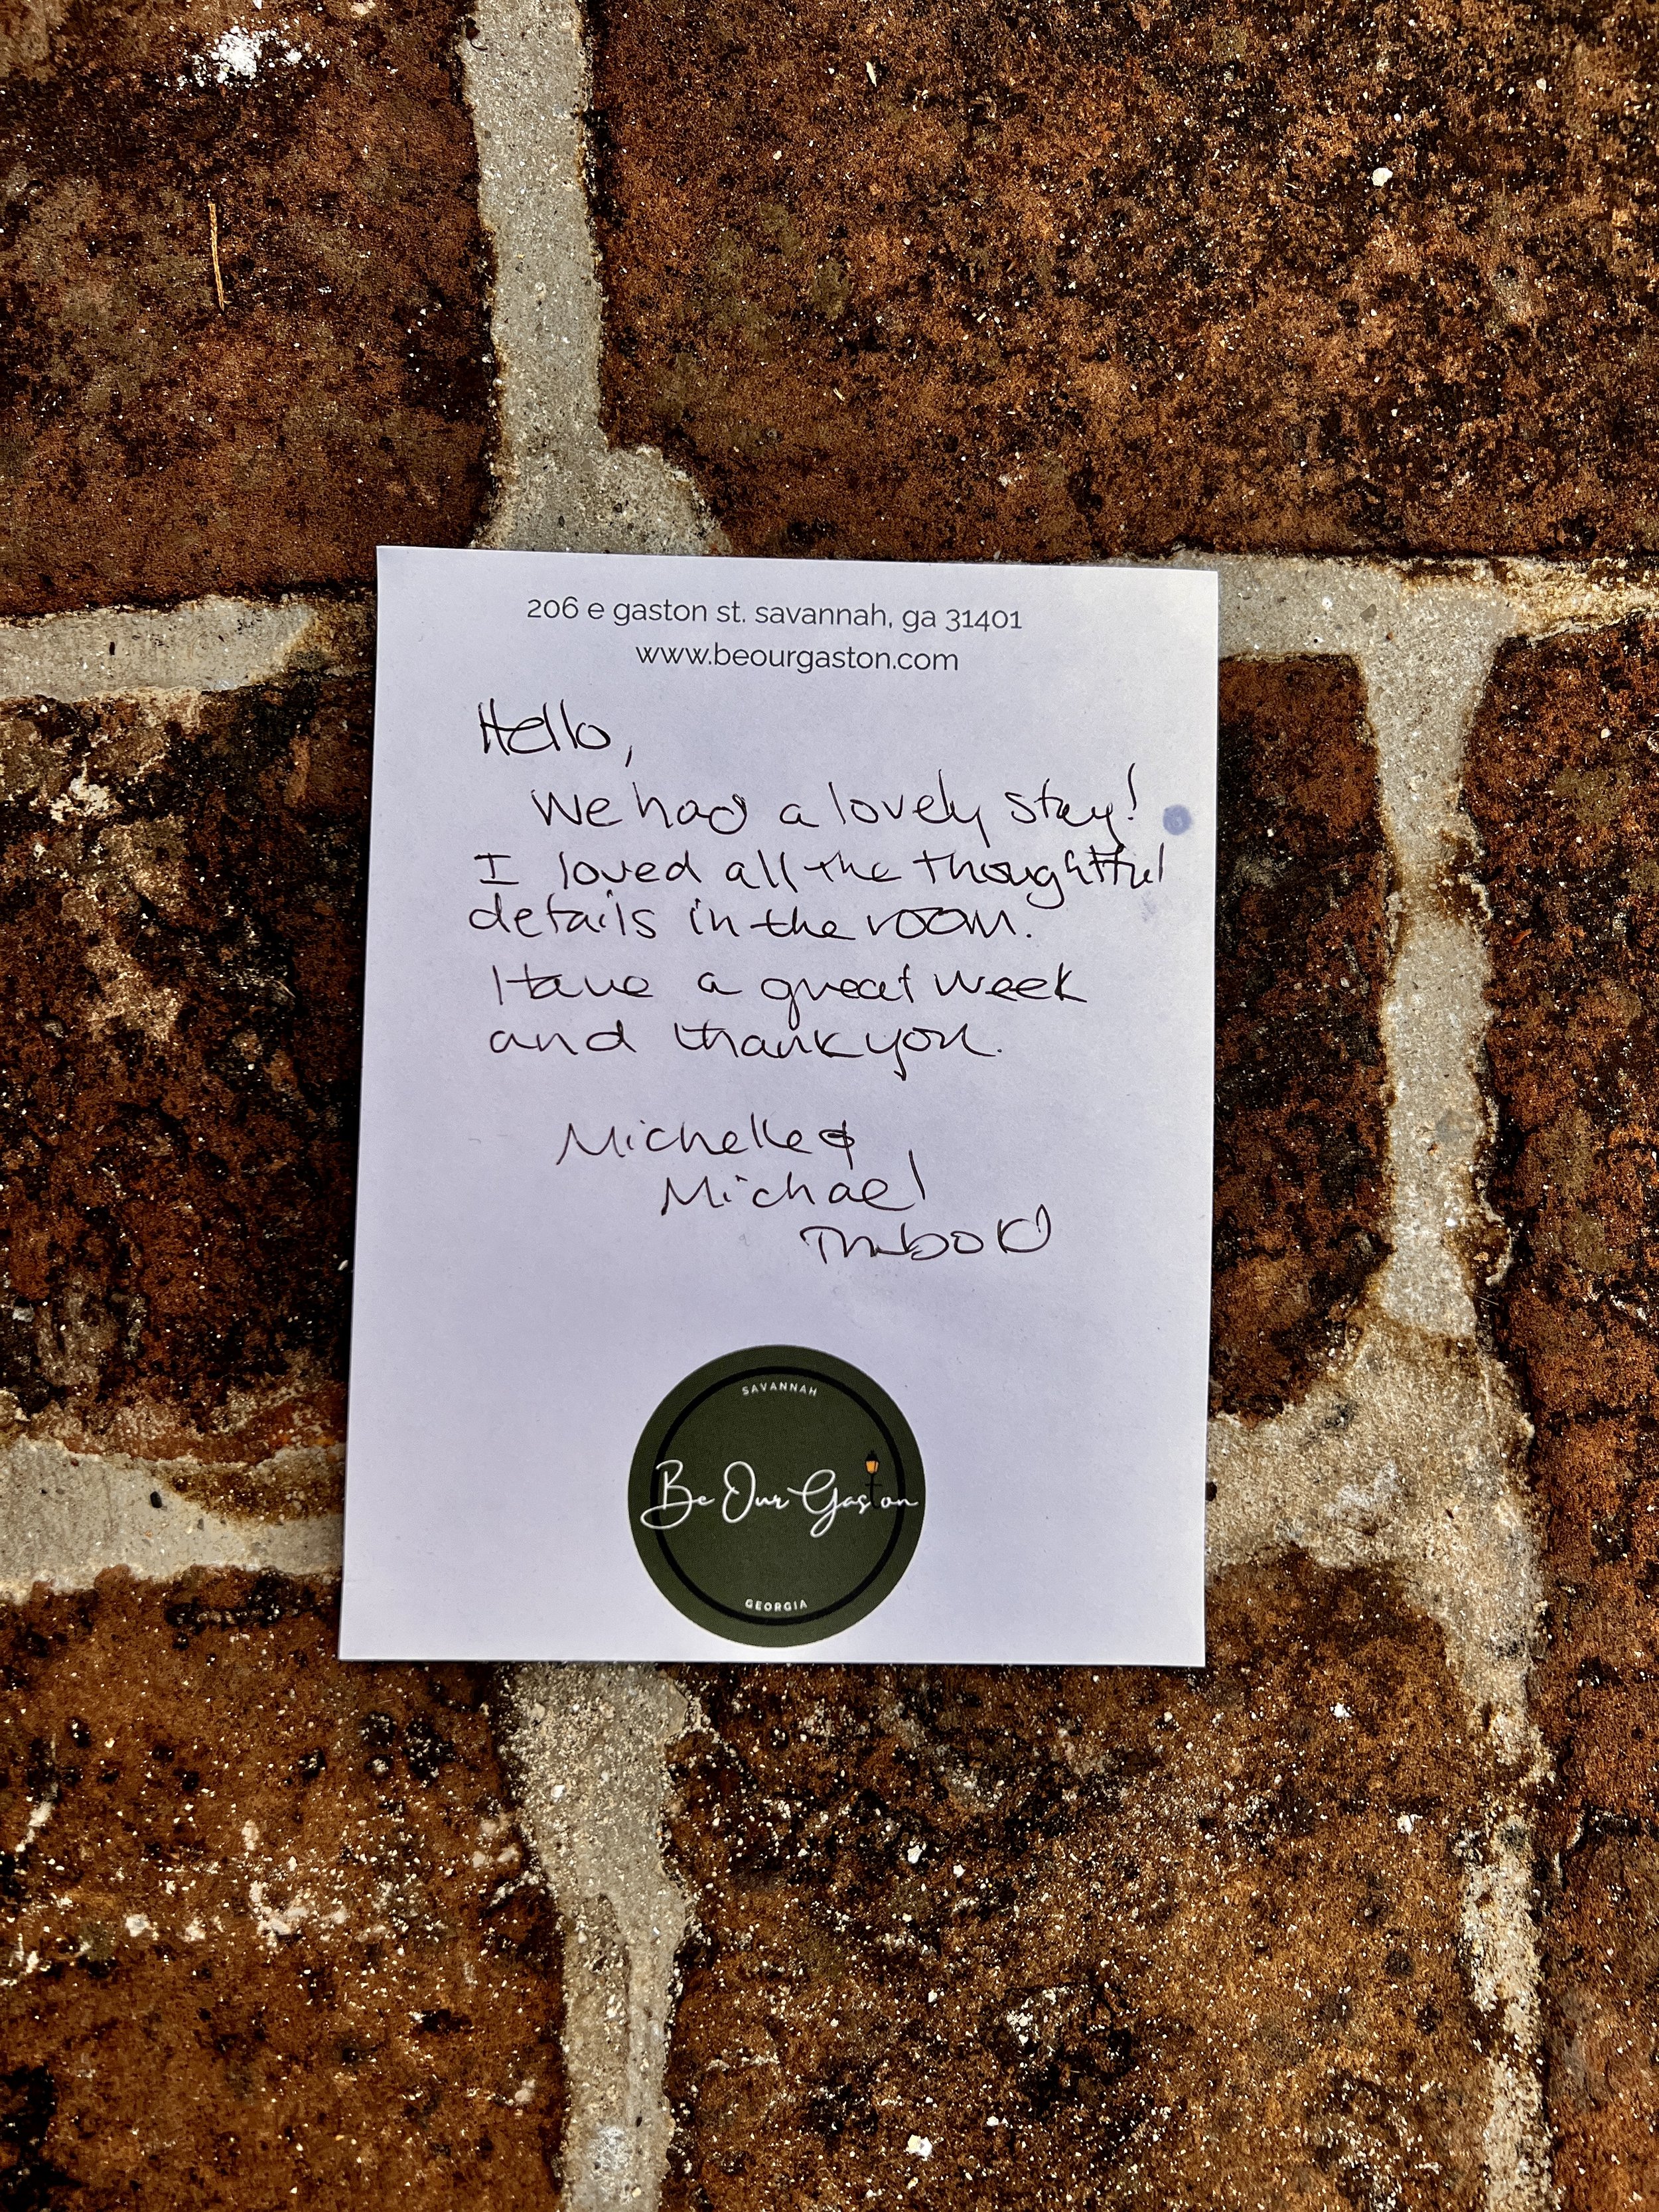 206 e gaston st. savannah, ga 31401
www.beourgaston.com
Hello,
We had a lovely stay!
I loved all the thoughtful
details in the room.
Have a great week
and thank you.
Michelle &
Michael
SAVANNAH
Be Our Gaston
GEORGIA